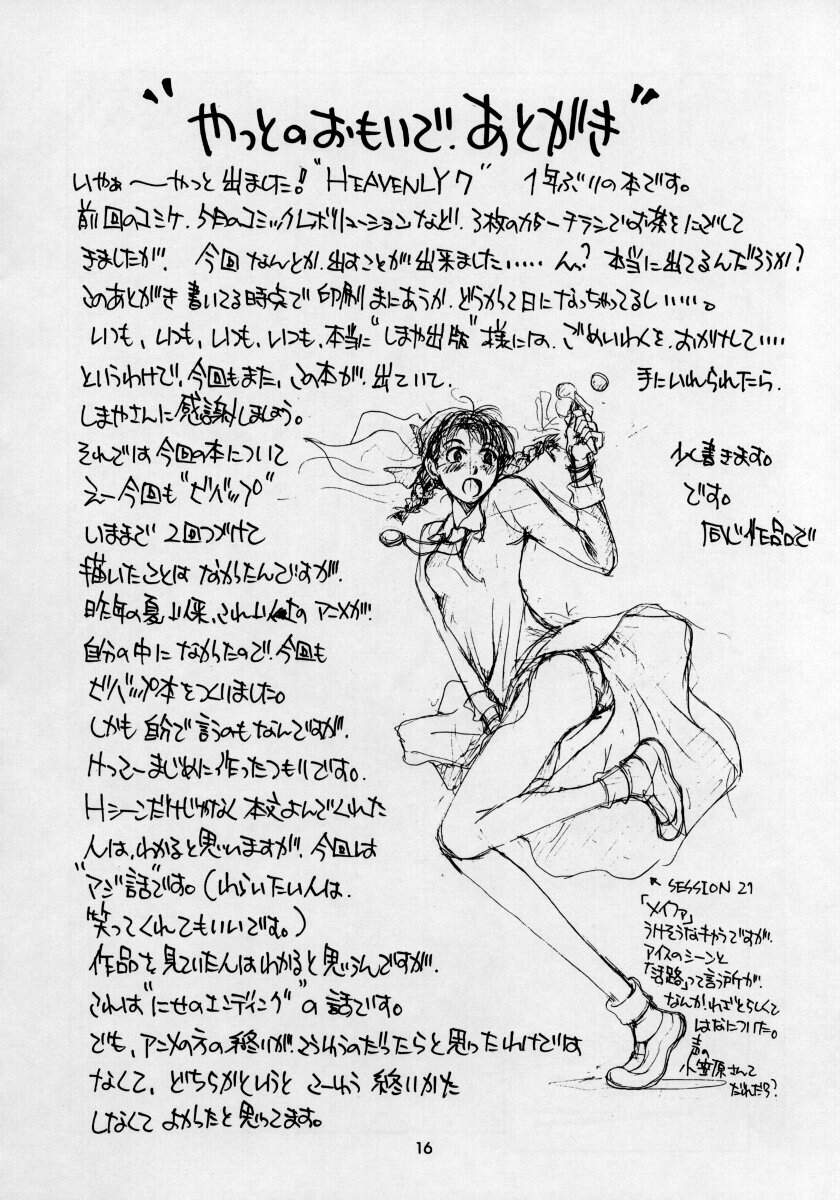 "やっとのおもいで！あとがき"
いやぁ〜やっと出ました！"HEAVENLY 7" 1年ぶりの本です。
前回のコミケ、5月のコミックレボリューションなど、3枚のカラーチラシでお茶をにごして
きましたが、今回なんとか、出すことが出来ました……ん？本当に出てるんだろうか？
このあとがき書いてる時点で印刷まにあうか、どうかって日になっちゃってるし……。
いつも、いつも、いつも、いつも、本当に"しまや出版"様には、ごめいわくを、おかけして……
というわけで、今回もまた、この本が、出ていて、手にいれられたら、
しまやさんに感謝しましょう。
それでは今回の本について少く書きます。
えー今回も"ビバップ"です。
いままで2回つづけて同じ作品で
描いたことはなかったんですが、
昨年の夏以来、これ以上のアニメが、
自分の中になかったので、今回も
ビバップ本をつくりました。
しかも自分で言うのもなんですが、
けっこーまじめに作ったつもりです。
Hシーンだけじゃなく本文よんでくれた
人は、わかると思いますが、今回は
"マジ話"です。（わらいたい人は、
笑ってくれてもいいです。）
作品を見ていた人はわかると思うんですが、
これは"にせのエンディング"の話です。
でも、アニメの方の終りが、こうゆうのだったらと思ったわけでは
なくて、どちらかというとこーゆう終りかた
しなくてよかったと思ってます。
↖ SESSION 21
「メイファ」
うけそうなキャラですが、
アイスのシーンと
「活路」って言う所が、
なんか、わざとらしくて
はなについた。
声の
小笠原さんて
だれだろ？
16